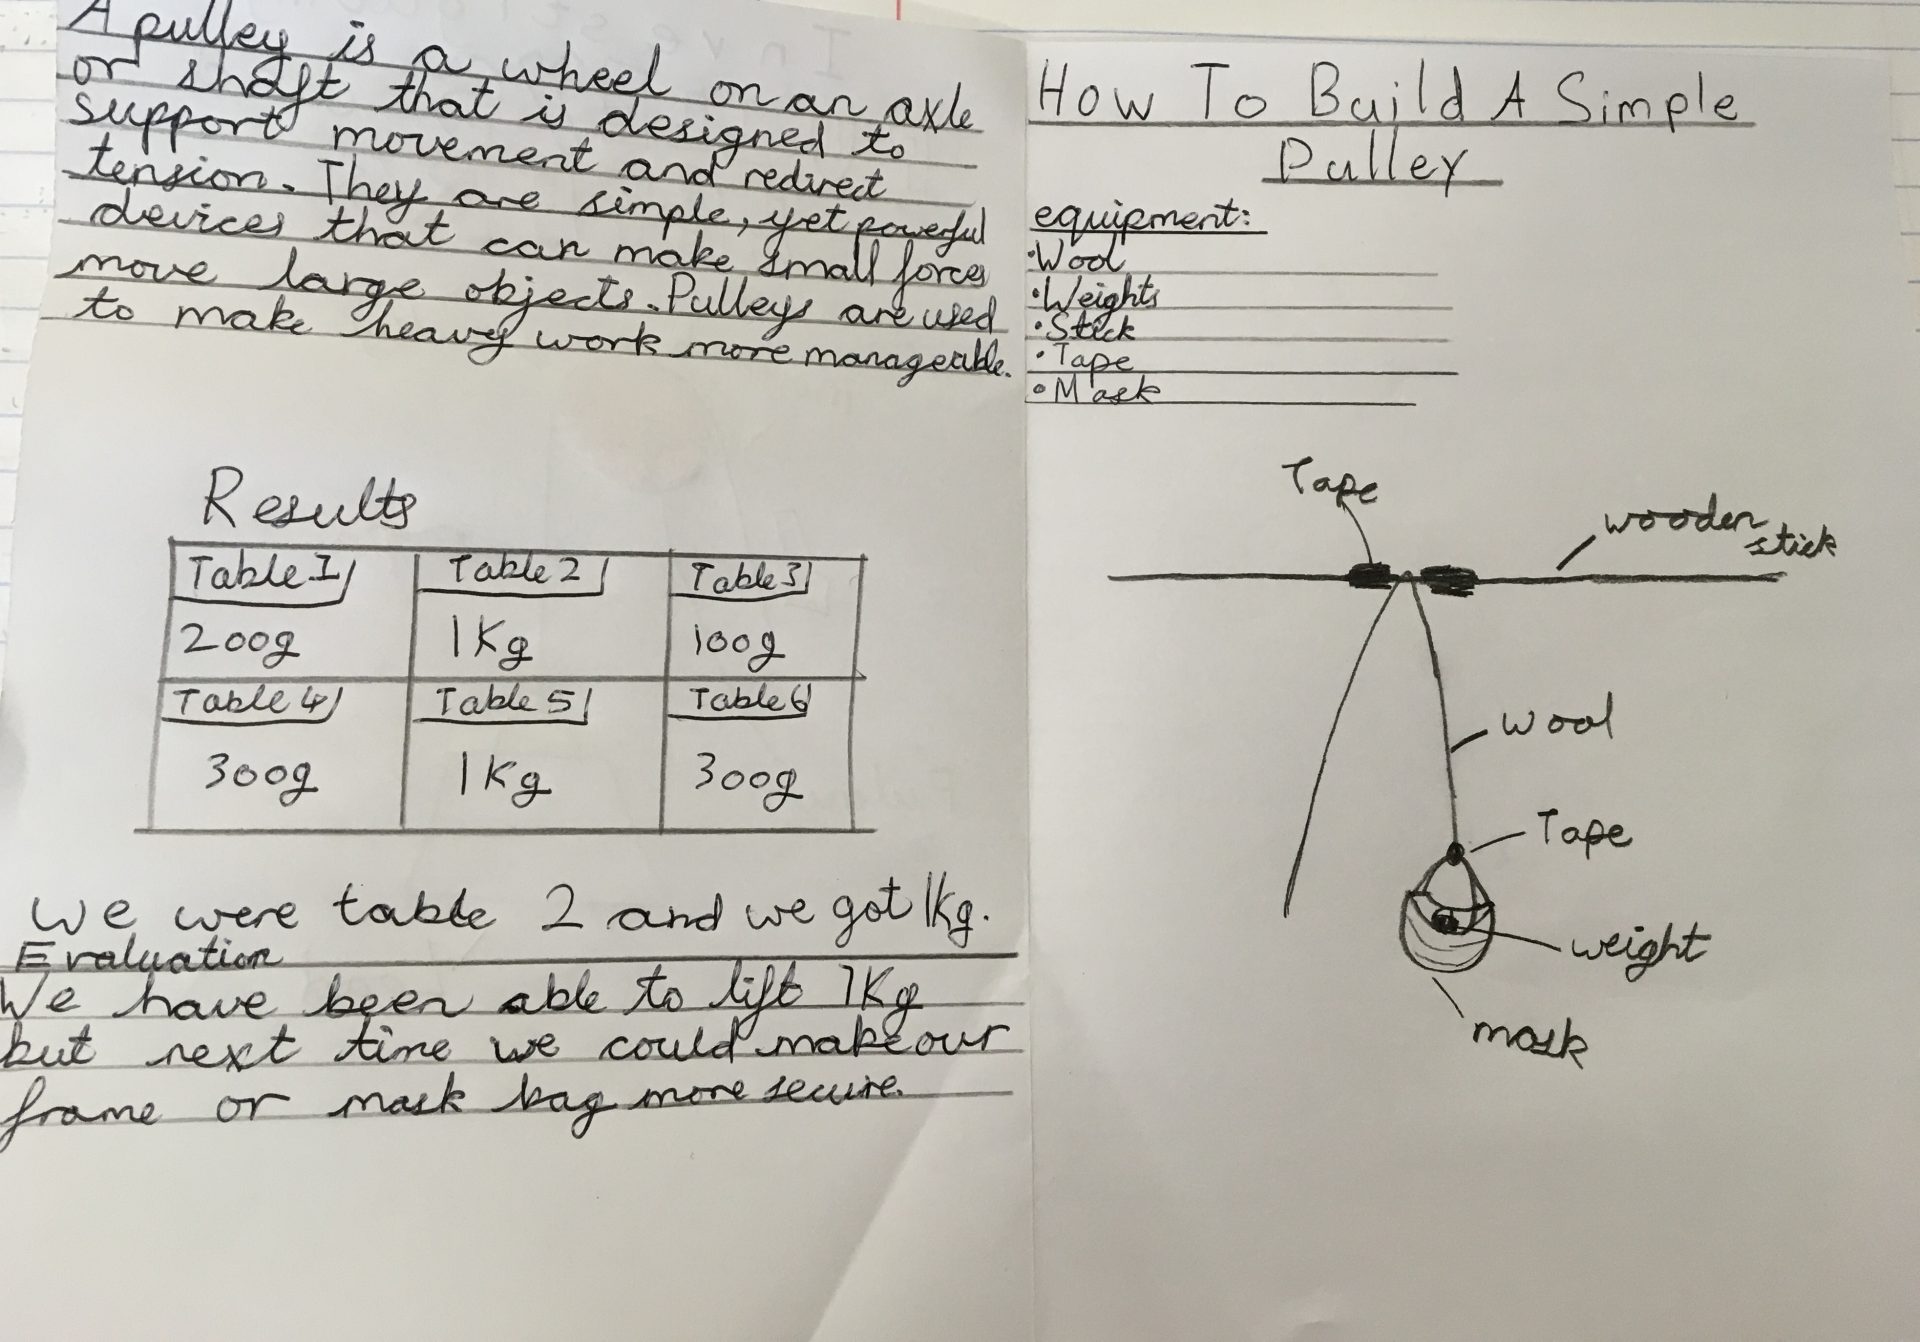 A pulley is a wheel on an axle
or shaft that is designed to
support movement and redirect
tension. They are simple, yet powerful
devices that can make small forces
move large objects. Pulleys are used
to make heavy work more manageable.
Results
Table 1 Table 2 Table 3
200g 1Kg 100g
Table 4 Table 5 Table 6
300g 1Kg 300g
We were table 2 and we got 1Kg.
Evaluation
We have been able to lift 1Kg
but next time we could make our
frame or mask bag more secure.
How To Build A Simple
Pulley
equipment:
•Wool
•Weights
•Stick
•Tape
•Mask
Tape
wooden
stick
wool
Tape
weight
mask